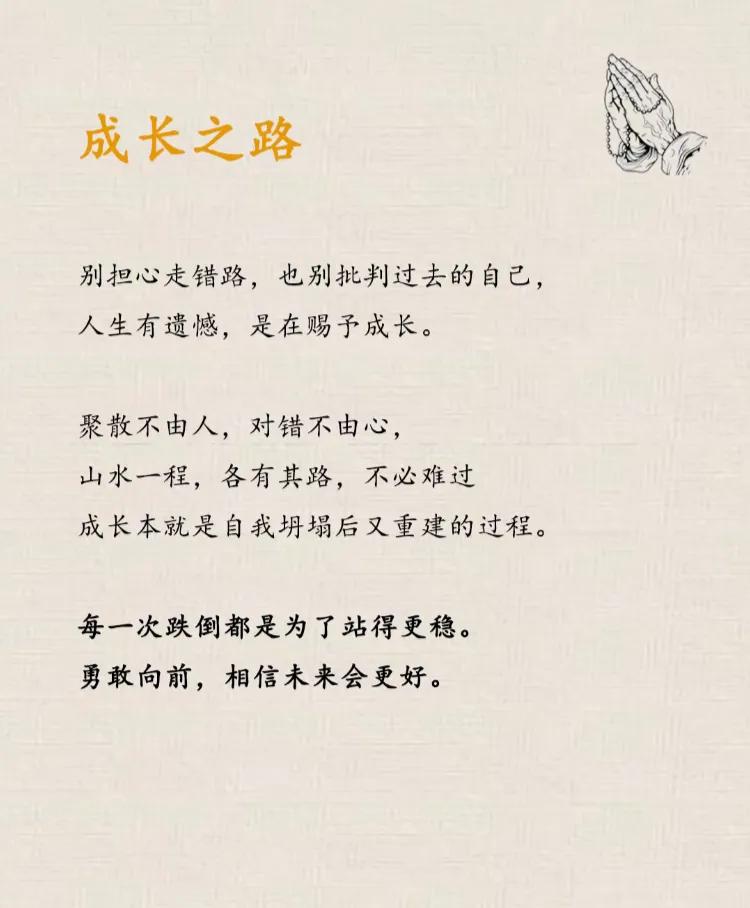 成长之路
别担心走错路，也别批判过去的自己，
人生有遗憾，是在赐予成长。
聚散不由人，对错不由心，
山水一程，各有其路，不必难过
成长本就是自我坍塌后又重建的过程。
每一次跌倒都是为了站得更稳。
勇敢向前，相信未来会更好。